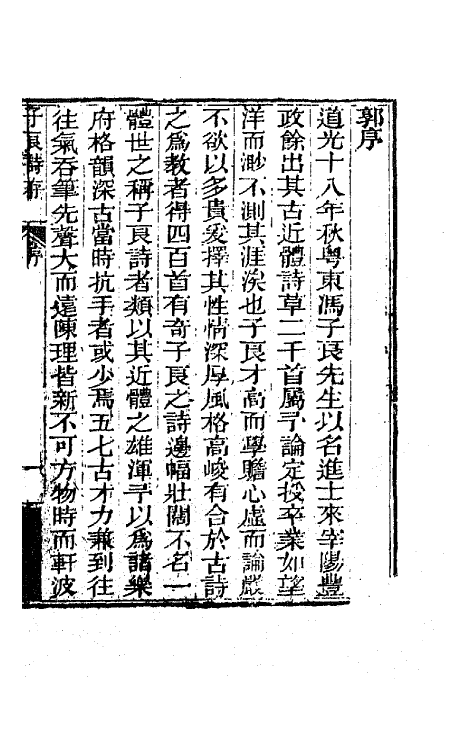 郭序
道光十八年秋粵東馮子良先生以名進士來宰陽豐
政餘出其古近體詩草二千首屬予論定授卒業如望
洋而渺不測其涯涘也子良才高而學贍心虛而論嚴
不欲以多貴爰擇其性情深厚風格高峻有合於古詩
之為教者得四百首有奇子良之詩邊幅壯闊不名一
體世之稱子良詩者類以其近體之雄渾予以為諸樂
府格韻深古當時抗手者或少焉五七古才力兼到往
往氣吞筆先聲大而遠陳理皆新不可方物時而軒波
子良詩存 序 一